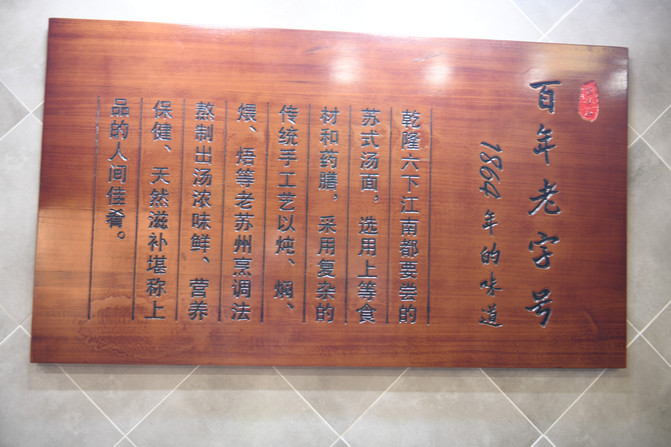 百年老字号
1864年的味道
乾隆六下江南都要尝的
苏式汤面，选用上等食
材和药膳，采用复杂的
传统手工艺以炖、焖、
煨、焐等老苏州烹调法
熬制出汤浓味鲜、营养
保健、天然滋补堪称上
品的人间佳肴。